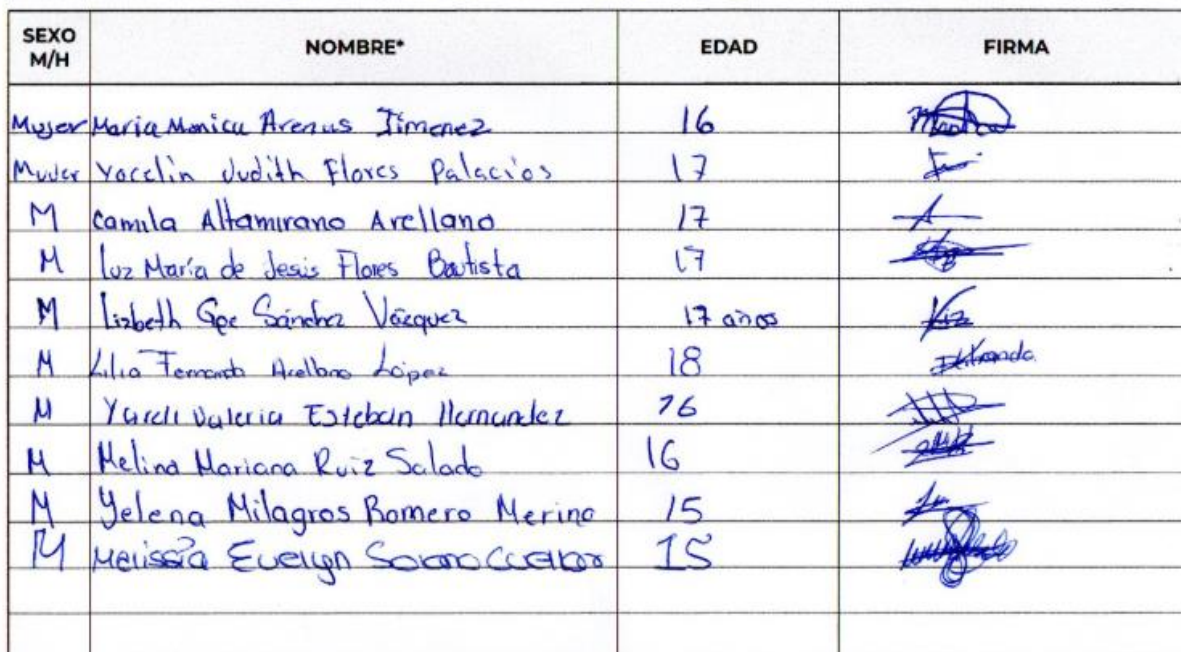 SEXO M/H NOMBRE* EDAD FIRMA
Mujer Maria Monica Arenas Jimenez 16
Mujer Yocelin Judith Flores Palacios 17
M Camila Altamirano Arellano 17
M Luz María de Jesús Flores Bautista 17
M Lizbeth Gpe Sánchez Vázquez 17 años Liz
M Lilia Fernanda Arellano López 18
M Yareli Valeria Esteban Hernandez 16
M Melina Mariana Ruiz Salado 16
M Yelena Milagros Romero Merino 15
M Melissa Evelyn 15